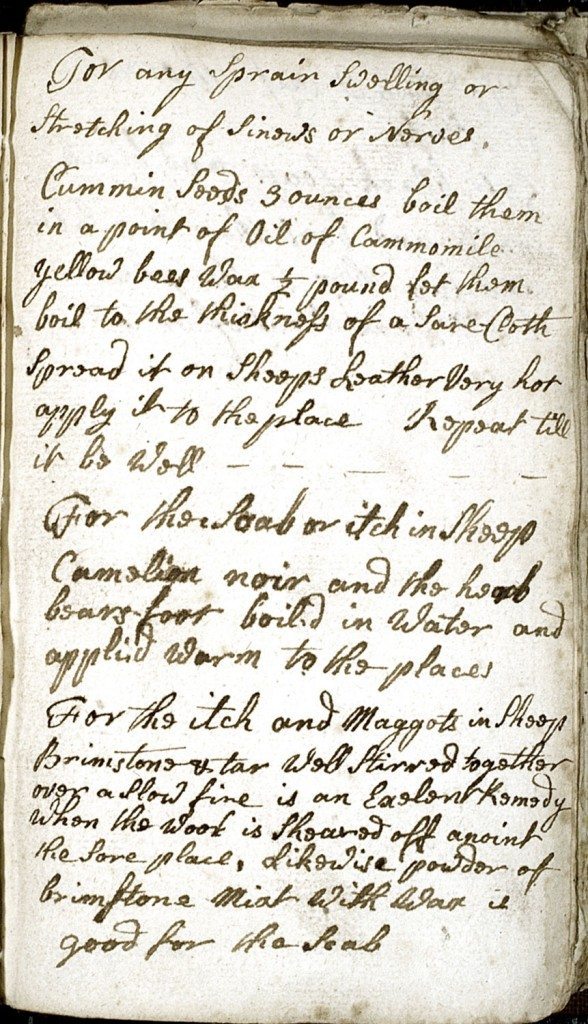 For any Sprain Swelling or
Stretching of Sinews or Nerves.
Cummin Seeds 3 ounces boil them
in a point of Oil of Cammomile
yellow bees Wax ½ pound let them
boil to the thickness of a Sare-Cloth
Spread it on Sheeps Leather Very hot
apply it to the place Repeat till
it be Well — — — — —
For the Scab or itch in Sheep
Camelion noir and the hearb
bears-foot boil'd in Water and
applid Warm to the places
For the itch and Maggots in Sheep
Brimstone & tar Well Stirred together
over a Slow fire is an Exelent Remedy
When the Wool is Sheared off anoint
the Sore place, Likewise powder of
brimstone Mixt With Wax is
good for the Scab